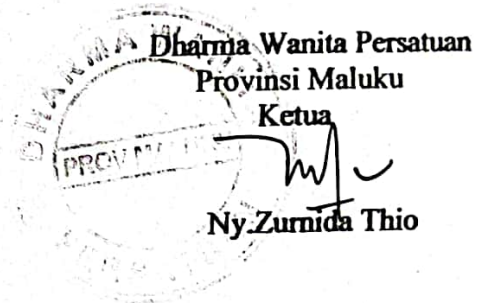 Dharma Wanita Persatuan
Provinsi Maluku
Ketua
Ny.Zurnida Thio
DHARMA
PROV